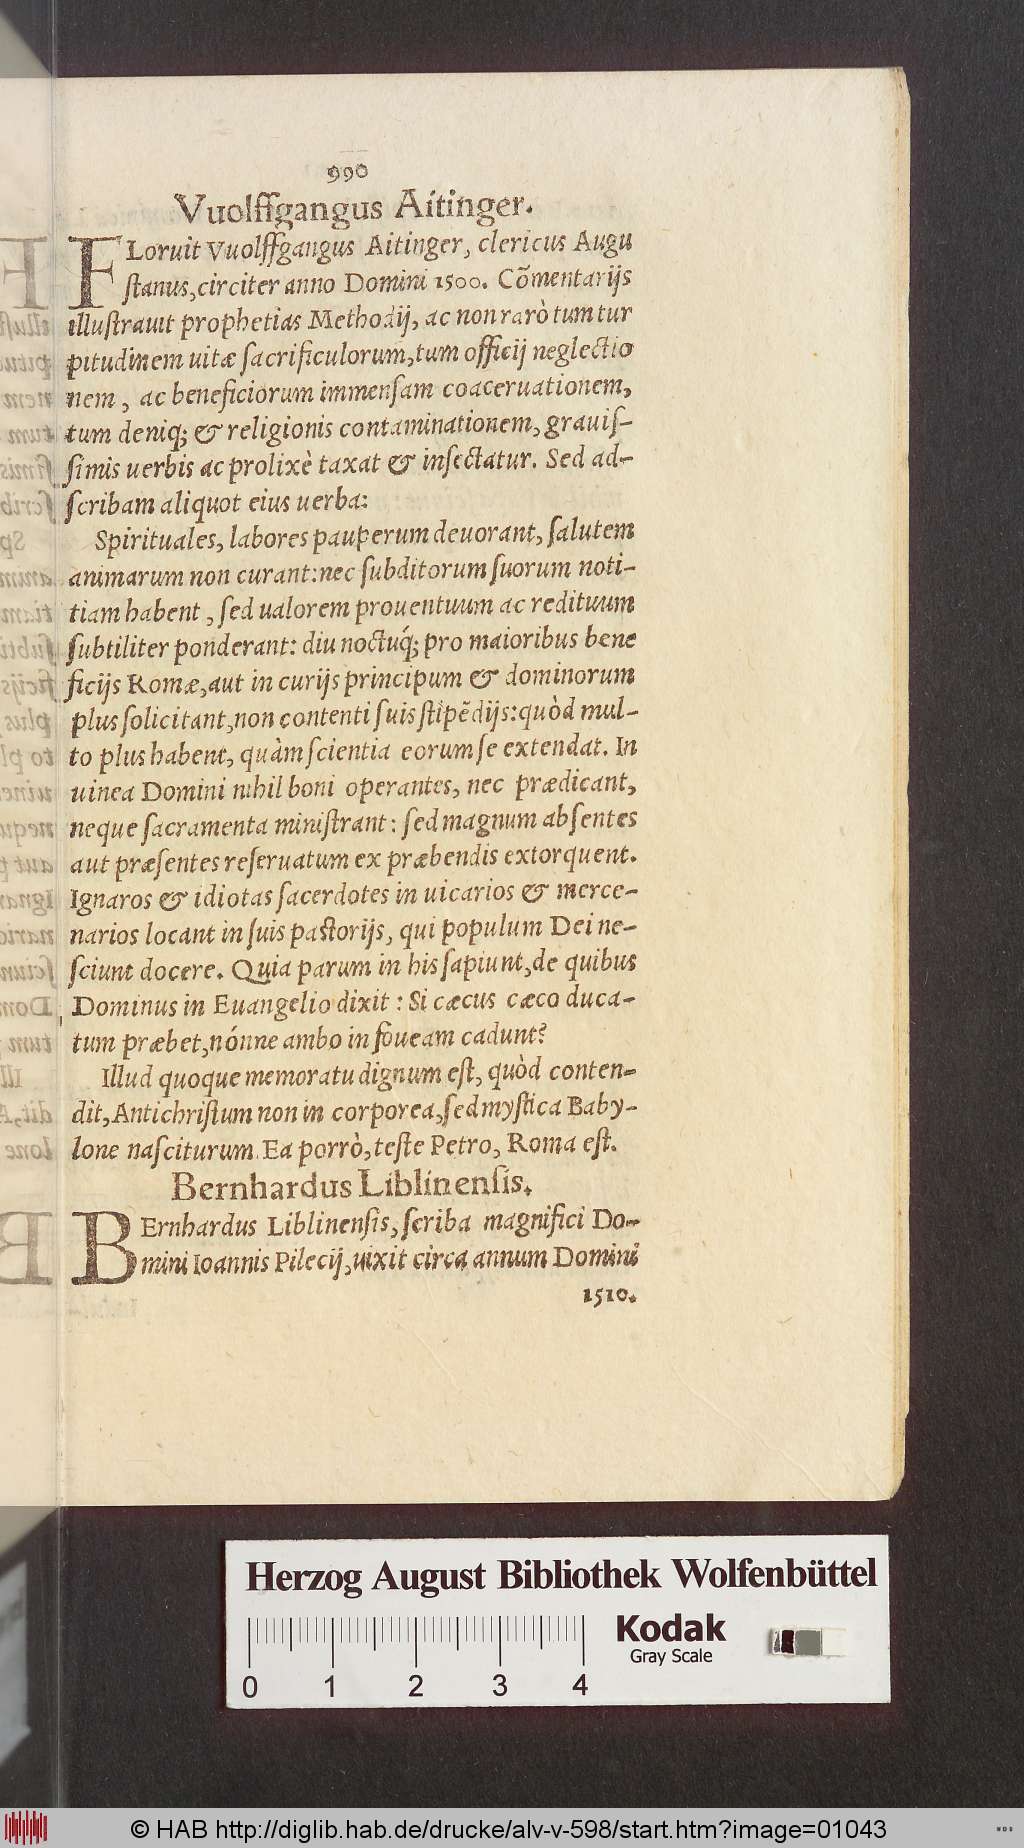 990
Vuolffgangus Aitinger.
FLoruit Vuolffgangus Aitinger, clericus Augu
stanus, circiter anno Domini 1500. Cõmentarijs
illustrauit prophetias Methodij, ac non rarò tum tur
pitudinem uitæ sacrificulorum, tum officij neglectio
nem, ac beneficiorum immensam coaceruationem,
tum deniq; & religionis contaminationem, grauis-
simis uerbis ac prolixè taxat & insectatur. Sed ad-
scribam aliquot eius uerba:
Spirituales, labores pauperum deuorant, salutem
animarum non curant: nec subditorum suorum noti-
tiam habent, sed ualorem prouentuum ac redituum
subtiliter ponderant: diu noctuq́; pro maioribus bene
ficijs Romæ, aut in curijs principum & dominorum
plus solicitant, non contenti suis stipẽdijs: quòd mul-
to plus habent, quàm scientia eorum se extendat. In
uinea Domini nihil boni operantes, nec prædicant,
neque sacramenta ministrant: sed magnum absentes
aut præsentes reseruatum ex præbendis extorquent.
Ignaros & idiotas sacerdotes in uicarios & merce-
narios locant in suis pastorijs, qui populum Dei ne-
sciunt docere. Quia parum in his sapiunt, de quibus
Dominus in Euangelio dixit: Si cæcus cæco duca-
tum præbet, nónne ambo in foueam cadunt?
Illud quoque memoratu dignum est, quòd conten-
dit, Antichristum non in corporea, sed mystica Baby-
lone nasciturum. Ea porrò, teste Petro, Roma est.
Bernhardus Liblinensis.
BErnhardus Liblinensis, scriba magnifici Do-
mini Ioannis Pilecij, uixit circa annum Domini
1510.
Herzog August Bibliothek Wolfenbüttel
Kodak
Gray Scale
0 1 2 3 4
© HAB http://diglib.hab.de/drucke/alv-v-598/start.htm?image=01043